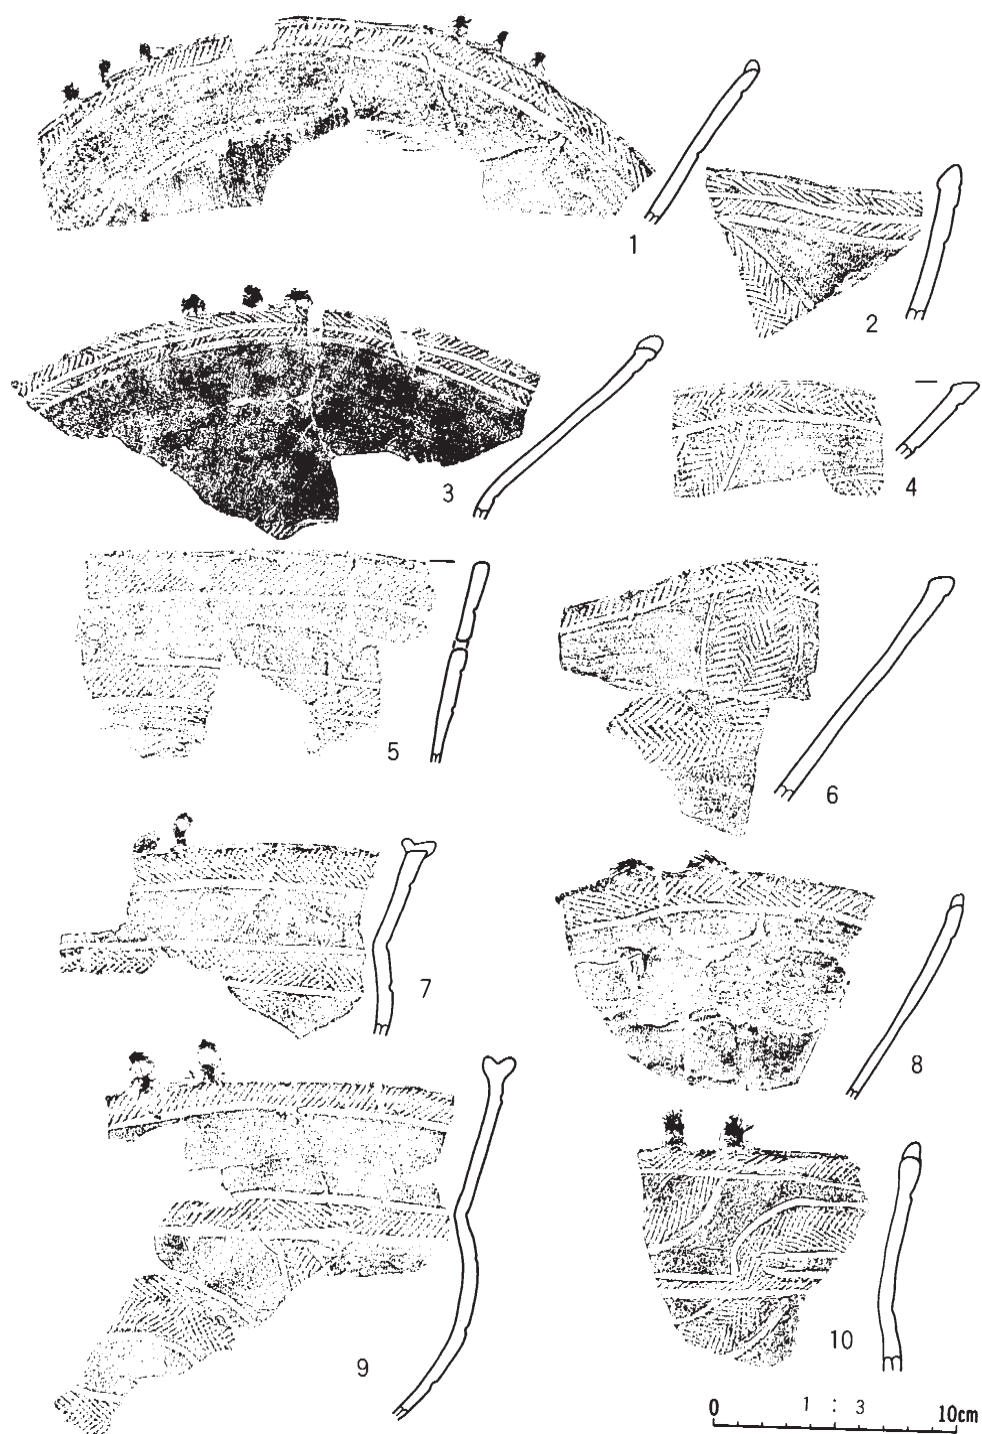 1
2
3
4
5
6
7
8
9
10
0 1 : 3 10cm